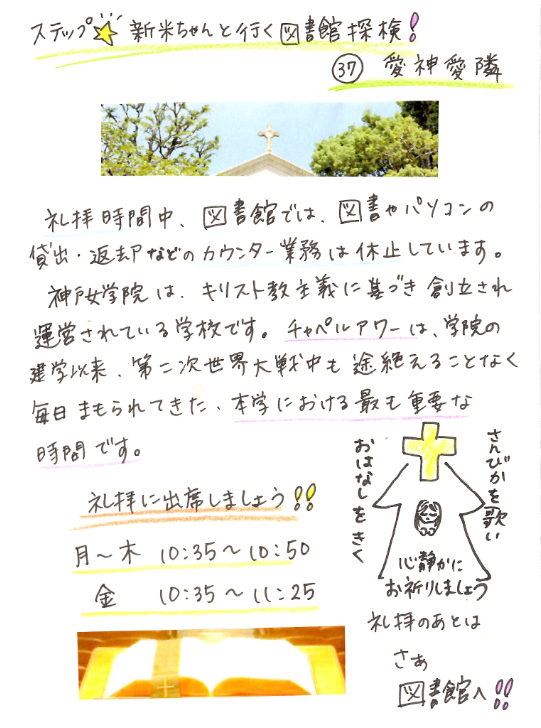 ステップ☆新米ちゃんと行く図書館探検!
㊲ 愛神愛隣
礼拝時間中、図書館では、図書やパソコンの
貸出・返却などのカウンター業務は休止しています。
神戸女学院は、キリスト教主義に基づき創立され
運営されている学校です。チャペルアワーは、学院の
建学以来、第二次世界大戦中も途絶えることなく
毎日まもられてきた、本学における最も重要な
時間です。
礼拝に出席しましょう!!
月～木 10:35～10:50
金 10:35～11:25
さんびかを歌い
おはなしをきく
心静かに
お祈りしましょう
礼拝のあとは
さぁ
図書館へ!!